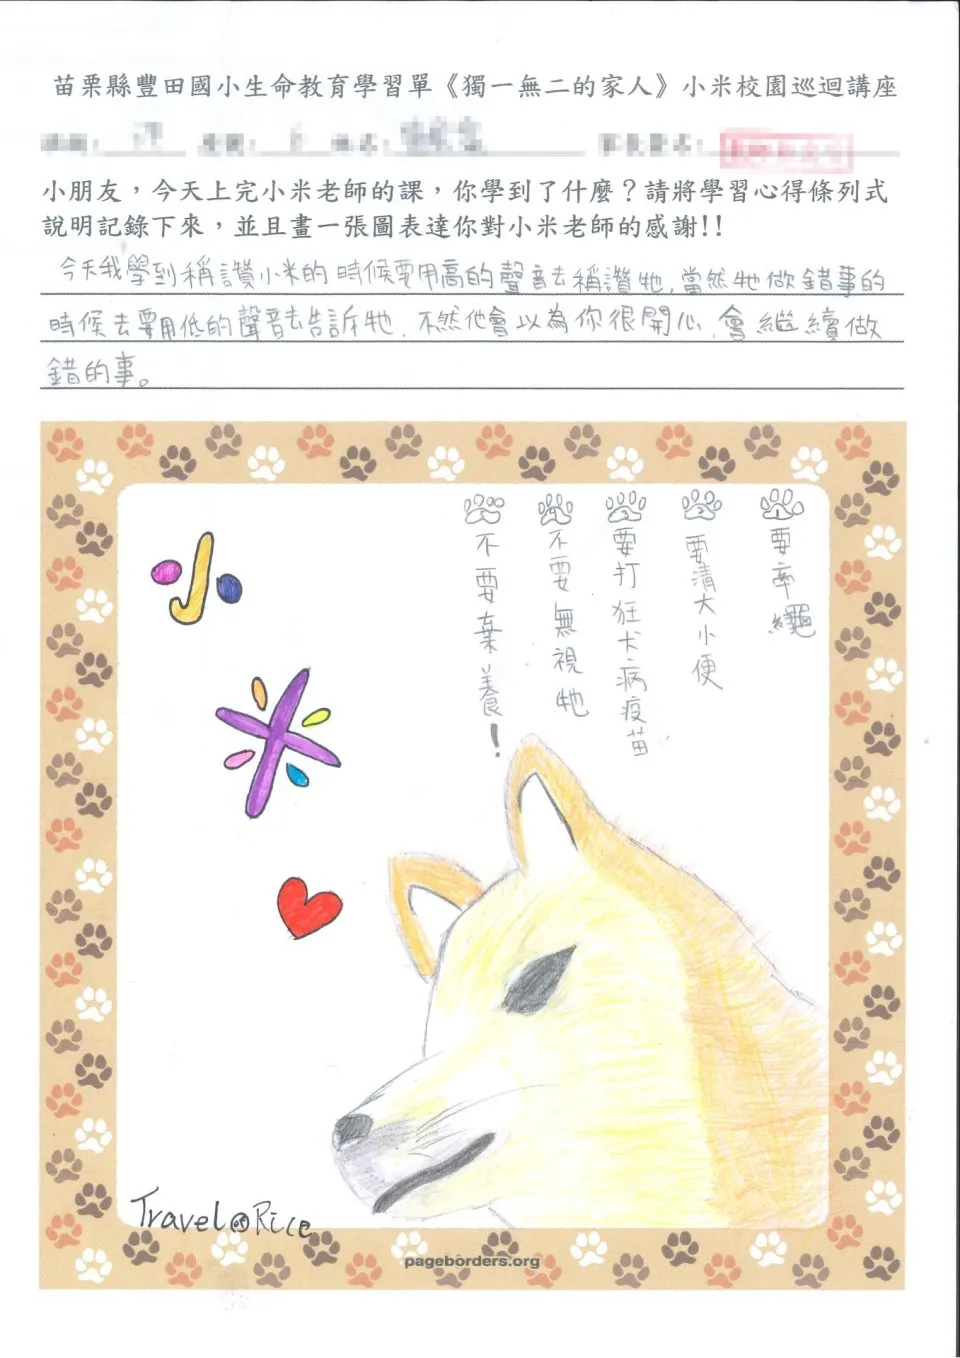 苗栗縣豐田國小生命教育學習單《獨一無二的家人》小米校園巡迴講座
小朋友，今天上完小米老師的課，你學到了什麼？請將學習心得條列式
說明記錄下來，並且畫一張圖表達你對小米老師的感謝!!
今天我學到稱讚小米的時候要用高的聲音去稱讚牠,當然牠做錯事的
時候去要用低的聲音去告訴牠.不然他會以為你很開心.會繼續做
錯的事。
1要牽繩
2要清大小便
3要打狂犬病疫苗
4不要無視牠
不要棄養!
小
米
Travel of Rice
pageborders.org